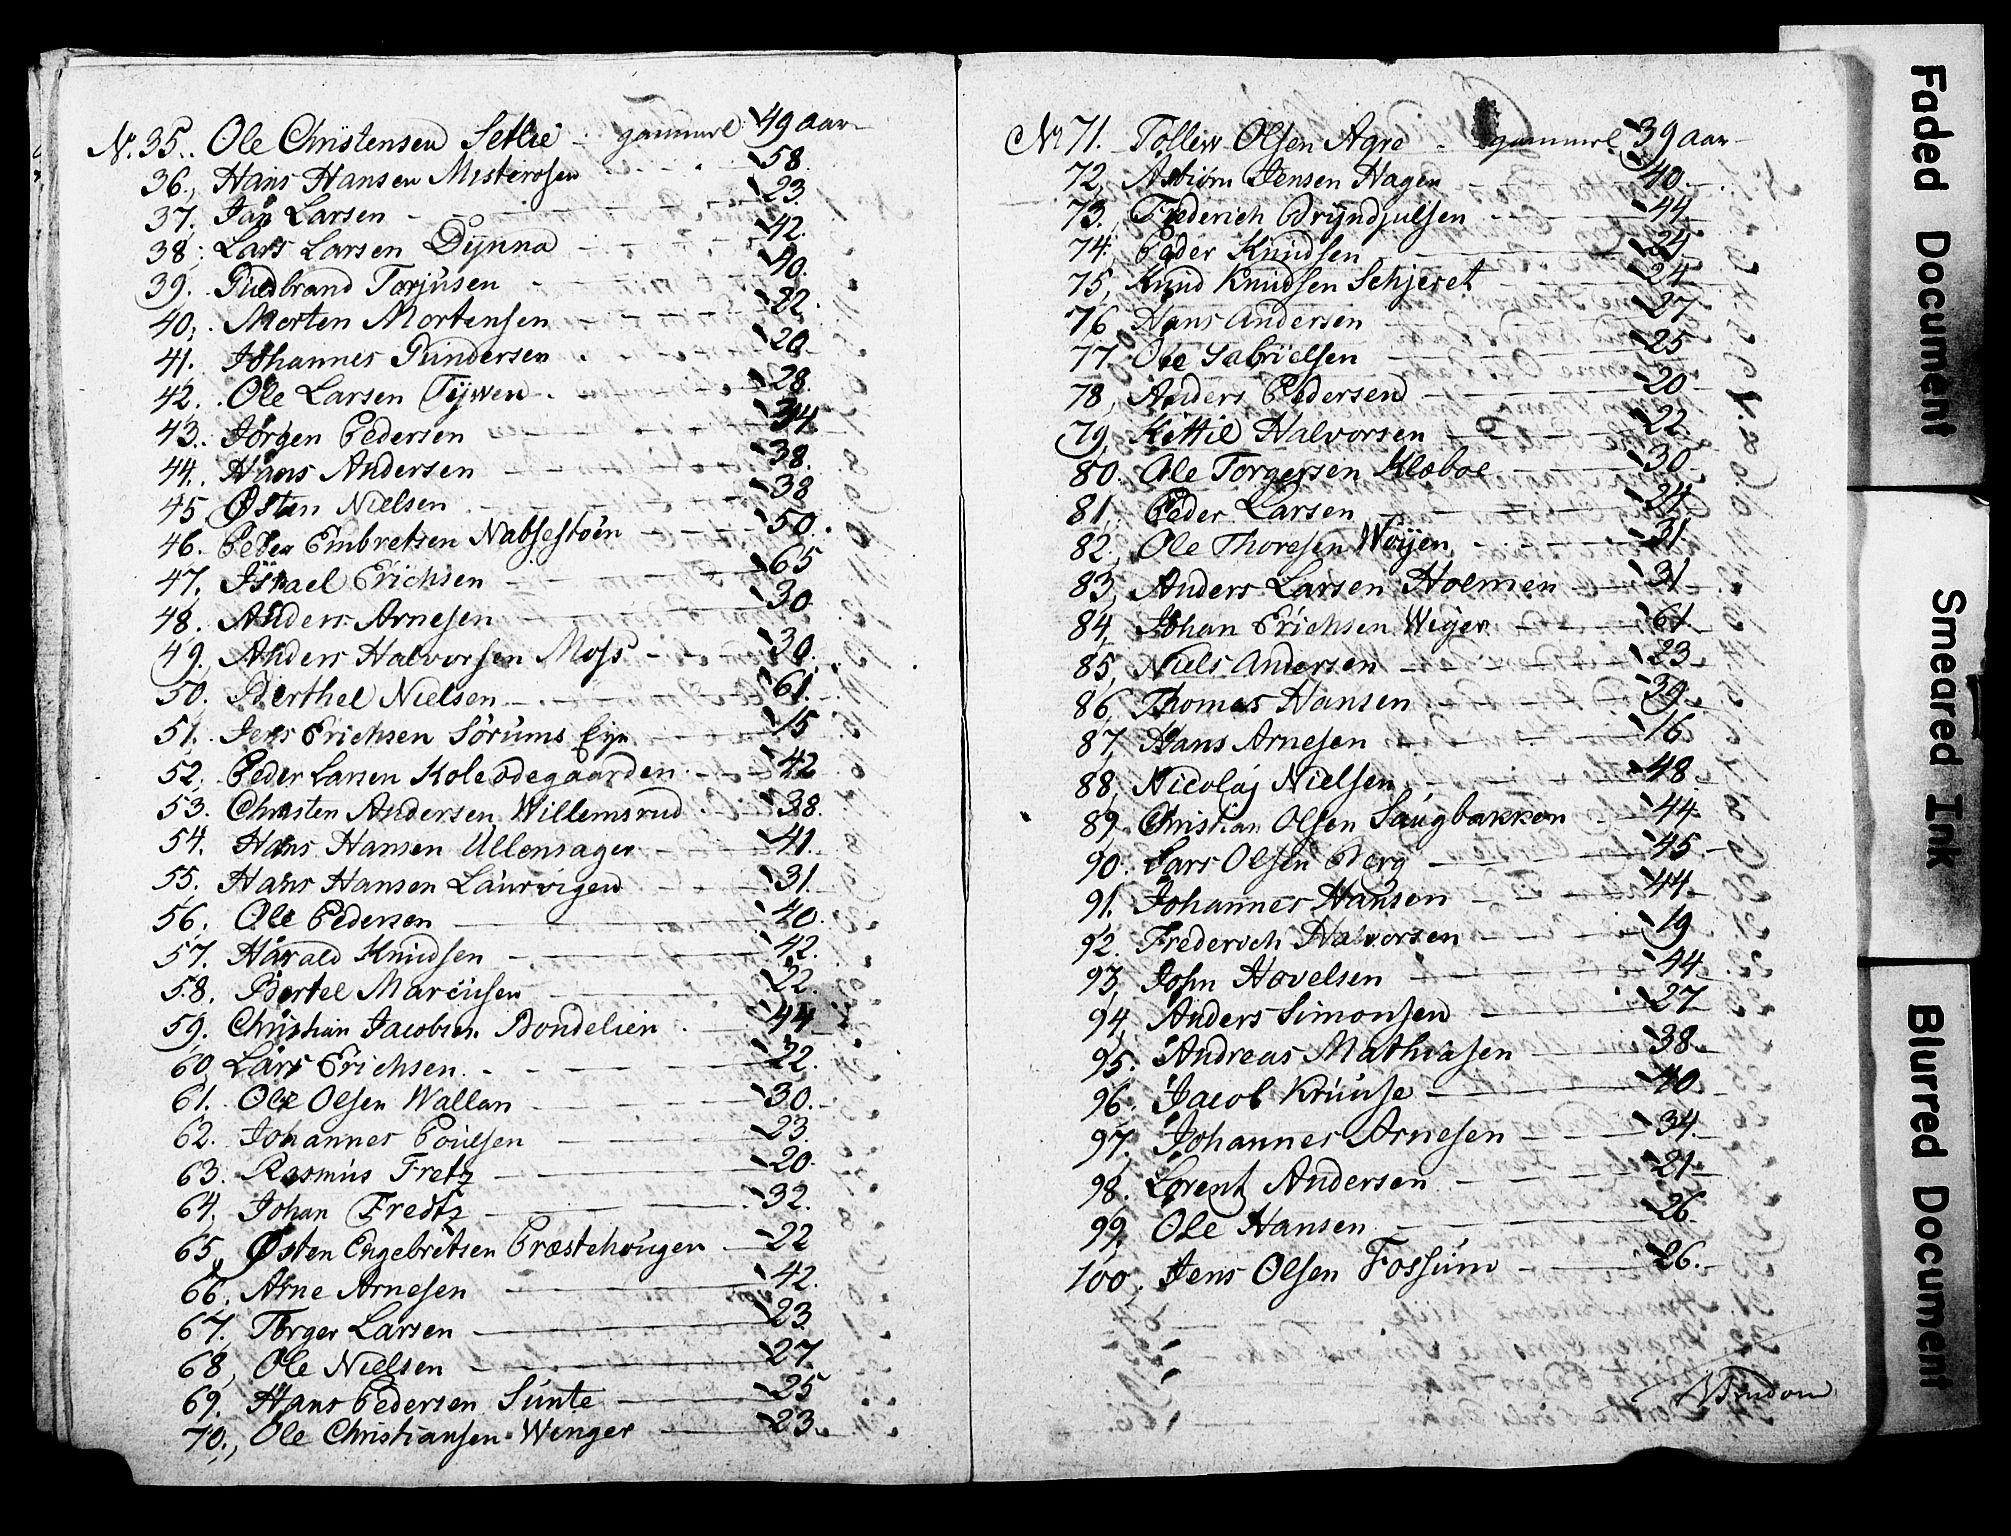 N. 35. Ole Christensen Setlie gammel 49 aar
36. Hans Hansen Misterosen 58.
37. Jan Larsen 23.
38. Lars Larsen Dynna 42.
39. Gudbrand Torjusen 40.
40. Morten Mortensen 22.
41. Johannes Gundersen 20.
42. Ole Larsen 28.
43. Jørgen Pedersen 34
44. Hans Andersen 38.
45. Østen Nielsen 38
46. Peder Embretsen 50.
47. Israel Erichsen 65
48. Anders Arnesen 30
49. Anders Halvorsen Moss 30.
50. Berthel Nielsen 61.
51. Jens Erichsen Sørums Eye 15
52. Peder Larsen Koleødegaarden 42
53. Christen Andersen Willemsrud 38.
54. Hans Hansen Ullensager 41.
55. Hans Hansen Laurvigen 31.
56. Ole Pedersen 40.
57. Harald Knudsen 42.
58. Bertel Marcusen 22.
59. Christian Jacobsen Bondelien 44
60. Lars Erichsen 22.
61. Ole Olsen Wallan 30.
62. Johannes Poulsen 23.
63. Rasmus Fretz 20.
64. Johan Fredtz 32.
65. Østen Engebretsen Præstehougen 22
66. Arne Arnesen 42.
67. Torger Larsen 23.
68. Ole Nielsen 27
69. Hans Pedersen Sunte 25
70. Ole Christiansen Winger 23.
No 71. Tollew Olsen Agre gammel 39 aar
72. Asbiørn Jensen Hagen 40.
73. Frederich Bryndjulsen 44
74. Peder Knudsen 24
75. Knud Knudsen Schjeret 24
76. Hans Andersen 27
77. Ole Gabrielsen 25
78. Anders Pedersen 20
79. Kittil Halvorsen 22.
80. Ole Torgersen Klæboe 30
81. Peder Larsen 24.
82. Ole Thoresen Woyen 31.
83. Anders Larsen Holmen 31
84. Johan Erichsen Weyer 61
85. Niels Andersen 23
86. Thomas Hansen 39.
87. Hans Arnesen 16
88. Nicolaj Nielsen 48
89. Christian Olsen Saugbakken 44
90. Lars Olsen Berg 45
91. Johannes Hansen 44
92. Frederich Halvorsen 19
93. John Hovelsen 44
94. Anders Simonsen 27
95. Andreas Mathiasen 38
96. Jacob Kruuse 40
97. Johannes Arnesen 34
98. Lorentz Andersen 21
99. Ole Hansen 26
100. Jens Olsen Fossum 26.
Faded Document
Smeared Ink
Blurred Document